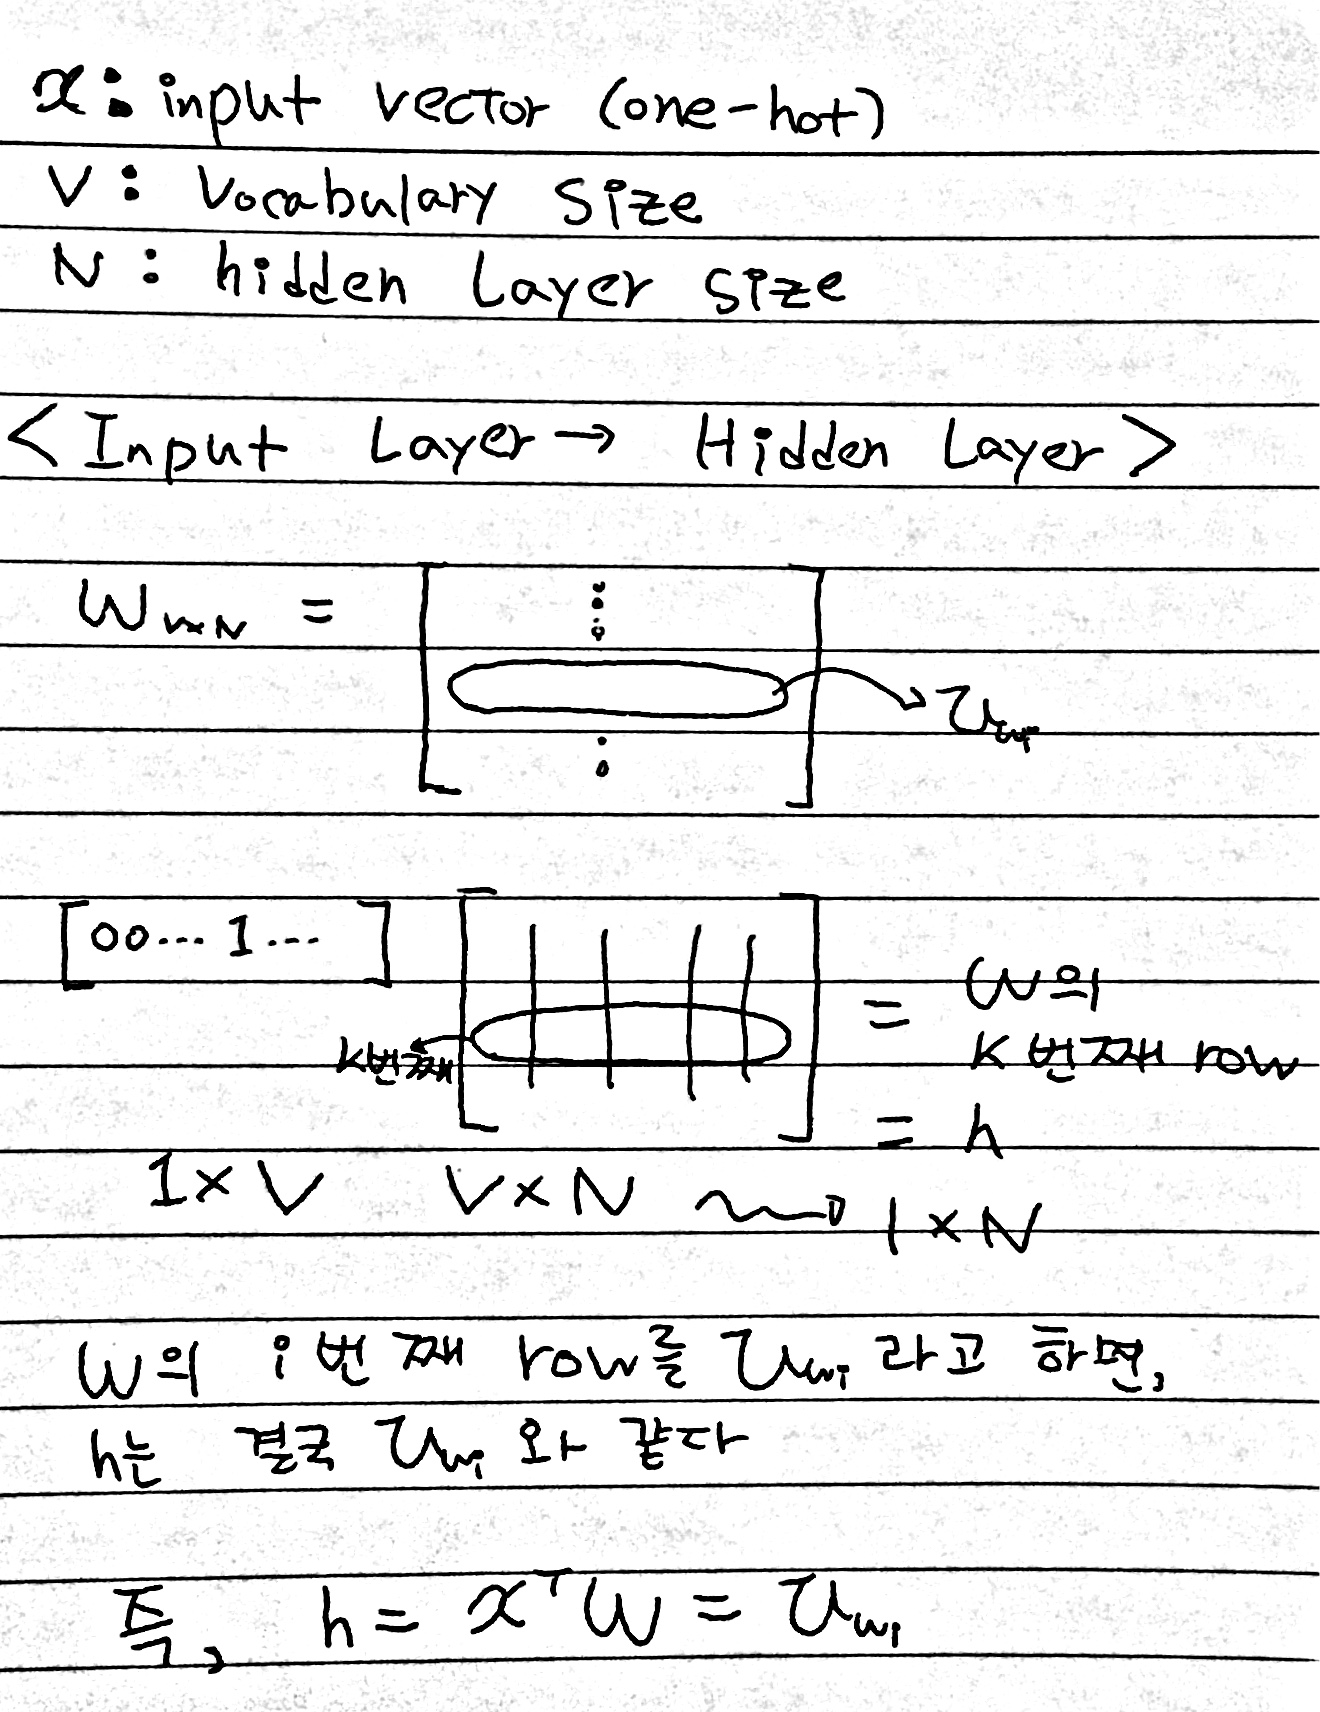 x: input vector (one-hot)
V: Vocabulary size
N: hidden Layer size
<Input Layer → Hidden Layer>
W V×N =
⋮
→ v wi
⋮
[00... 1... ]
= W의
K번째
K번째 row
= h
1×V V×N → 1×N
W의 i번째 row를 v wi 라고 하면,
h는 결국 v wi 와 같다
즉, h = xᵀW = v wi